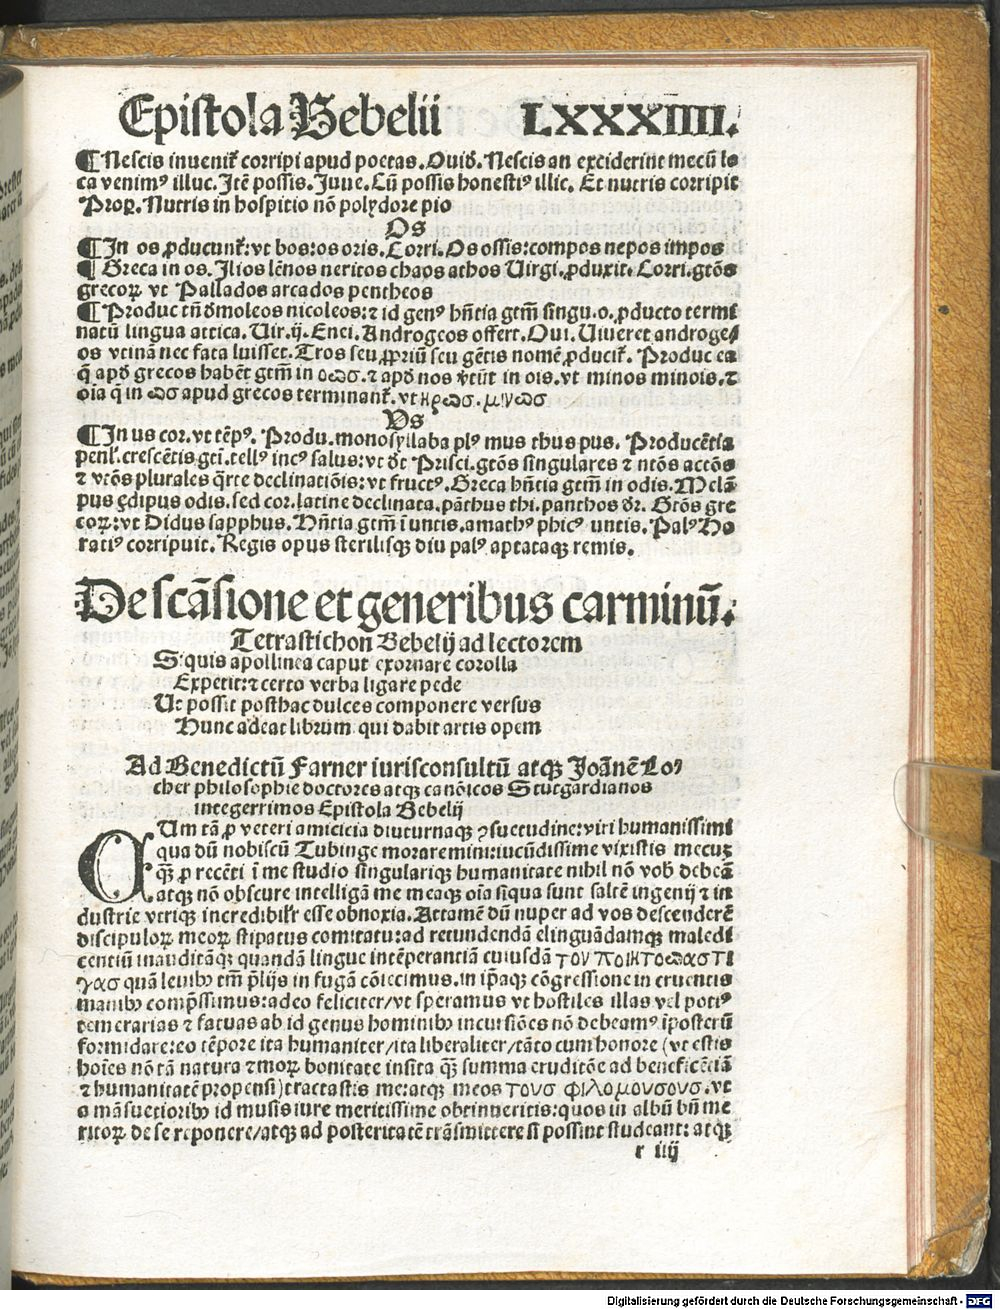 Epistola Bebelii LXXXIIII.
¶ Nescis invenit̃ corripi apud poetas. Ouid. Nescis an exciderint mecũ lo
ca venimꝰ illuc. Itẽ possis. Juue. Cũ possis honestiꝰ illic. Et nutris corripit
Proꝑ. Nutris in hospitio nõ polydore pio
Os
¶ In os ꝓducunt̃: vt bos: os oris. Corri. Os ossis: compos nepos impos
¶ Greca in os. Ilios lẽnos neritos chaos athos Uirgi. ꝓduxit. Corri. gtõs
grecoꝝ vt Pallados arcados pentheos
¶ Produc tñ dmoleos nicoleos: ⁊ id genꝰ hñtia gtm̃ singu. o. ꝓducto termi
natũ lingua attica. Uir. ij. Enei. Androgeos offert. Oui. Uiueret androge/
os vtinã nec fata luisset. Tros seu ꝓpriũ seu gẽtis nomẽ ꝓducit̃. Produc ea
q̃ apd grecos habẽt gtm̃ in οωσ. ⁊ apd nos ṽtũt in ois. vt minos minois. ⁊
oĩa q̃ in ωσ apud grecos terminant̃. vt ηρωσ. μινωσ
Vs
¶ In us cor. vt tẽpꝰ. Produ. monosyllaba plꝰ mus thus pus. Producẽtia
penl̃. crescẽtis gti. tellꝰ incꝰ salus: vt dt Prisci. gtõs singulares ⁊ ntõs actõs
⁊ vtõs plurales q̃rte declinatiõis: vt fructꝰ. Greca hñtia gtm̃ in odis. Melã
pus ędipus odis. sed cor. latine declinata. pãthus thi. panthos dr̃. Gtõs gre
coꝝ: vt Didus sapphus. Hñtia gtm̃ ĩ untis. amathꝰ phicꝰ untis. Palꝰ Ho
ratiꝰ corripuit. Regis opus sterilisqꝫ diu palꝰ aptataqꝫ remis.
De scãsione et generibus carminũ.
Tetrastichon Bebelij ad lectorem
Siquis apollinea caput exornare corolla
Expetit: ⁊ certo verba ligare pede
Ut possit posthac dulces componere versus
Hunc adeat librum qui dabit artis opem
Ad Benedictũ Farner iurisconsultũ atqꝫ Joãnẽ Loꝰ
cher philosophie doctores atqꝫ canõicos Stutgardianos
integerrimos Epistola Bebelij
CUm tã ꝓ veteri amicicia diuturnaqꝫ ꝯsuetudine: viri humanissimi
qua dũ nobiscũ Tubinge moraremini: iucũdissime vixistis mecuꝫ
qꝫ̃ ꝓ recẽti ĩ me studio singulariqꝫ humanitate nihil nõ vob̃ debeã
atqꝫ nõ obscure intelligã me meaqꝫ oĩa siqua sunt saltẽ ingenij ⁊ in
dustrie vtriqꝫ incredibilr̃ esse obnoxia. Attamẽ dũ nuper ad vos descenderẽ
discipuloꝝ meoꝝ stipatus comitatu: ad retundendã elinguãdamqꝫ maledi
centiũ inauditãqꝫ quandã lingue intẽperantiã cuiusdã του ποιητοωαστι
γασ quã leuibꝰ tm̃ p̃lijs in fugã cõiecimus. in ip̃aqꝫ cõgressione in cruentis
manibꝰ comp̃ssimus: adeo feliciter/vt speramus vt hostiles illas vel potiꝰ
temerarias ⁊ fatuas ab id genus hominibꝰ incursiões nõ debeamꝰ ĩposterũ
formidare: eo tẽpore ita humaniter/ita liberaliter/tãto cum honore (vt estis
hoĩes nõ tã natura ⁊ moꝝ bonitate insita qꝫ̃ summa eruditõe ad beneficẽtiã
⁊ humanitatẽ propensi) tractastis me: atqꝫ meos τους φιλομουσους. vt
a mãsuetioribꝰ id musis iure meritissime obtinueritis: quos in albũ bñ me
ritoꝝ de se reponere/atqꝫ ad posteritatẽ trãsmittere si possint studeant: atqꝫ
r iiij
Digitalisierung gefördert durch die Deutsche Forschungsgemeinschaft - DFG